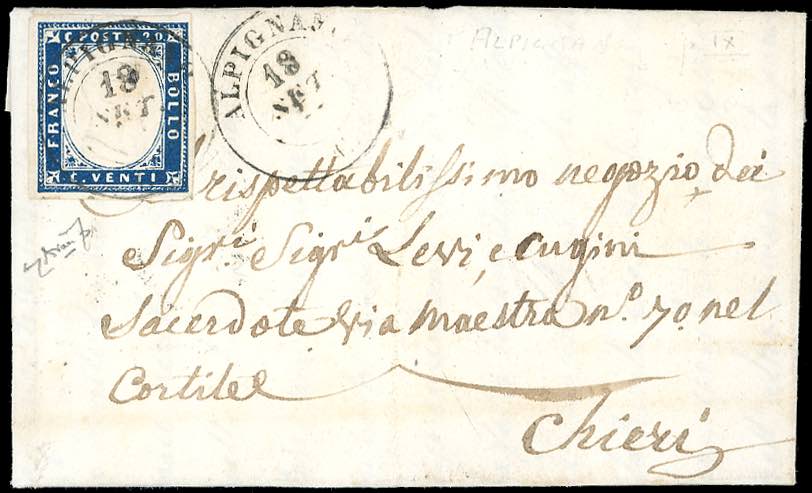 C. POSTE 20.
FRANCO
BOLLO
C. VENTI
ALPIGNANO
18
SET
ALPIGNANO
18
SET
rispettabilissimo negozio dei
Sigri Sigri Levi, e cugini
Sacerdote via maestra n.º 70. nel
Cortile
Chieri